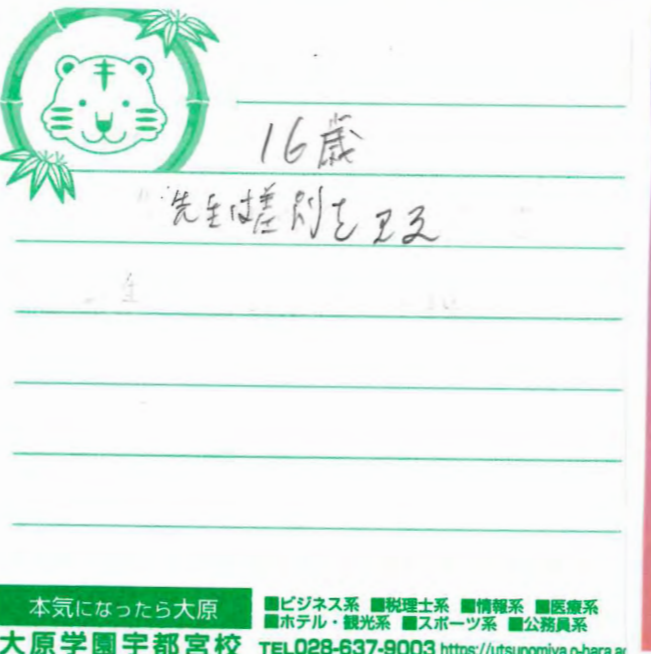 16歳
先生は差別を
本気になったら大原
■ビジネス系 ■税理士系 ■情報系 ■医療系
■ホテル・観光系 ■スポーツ系 ■公務員系
大原学園宇都宮校 TEL028-637-9003 https://utsunomiya.o-hara.ac